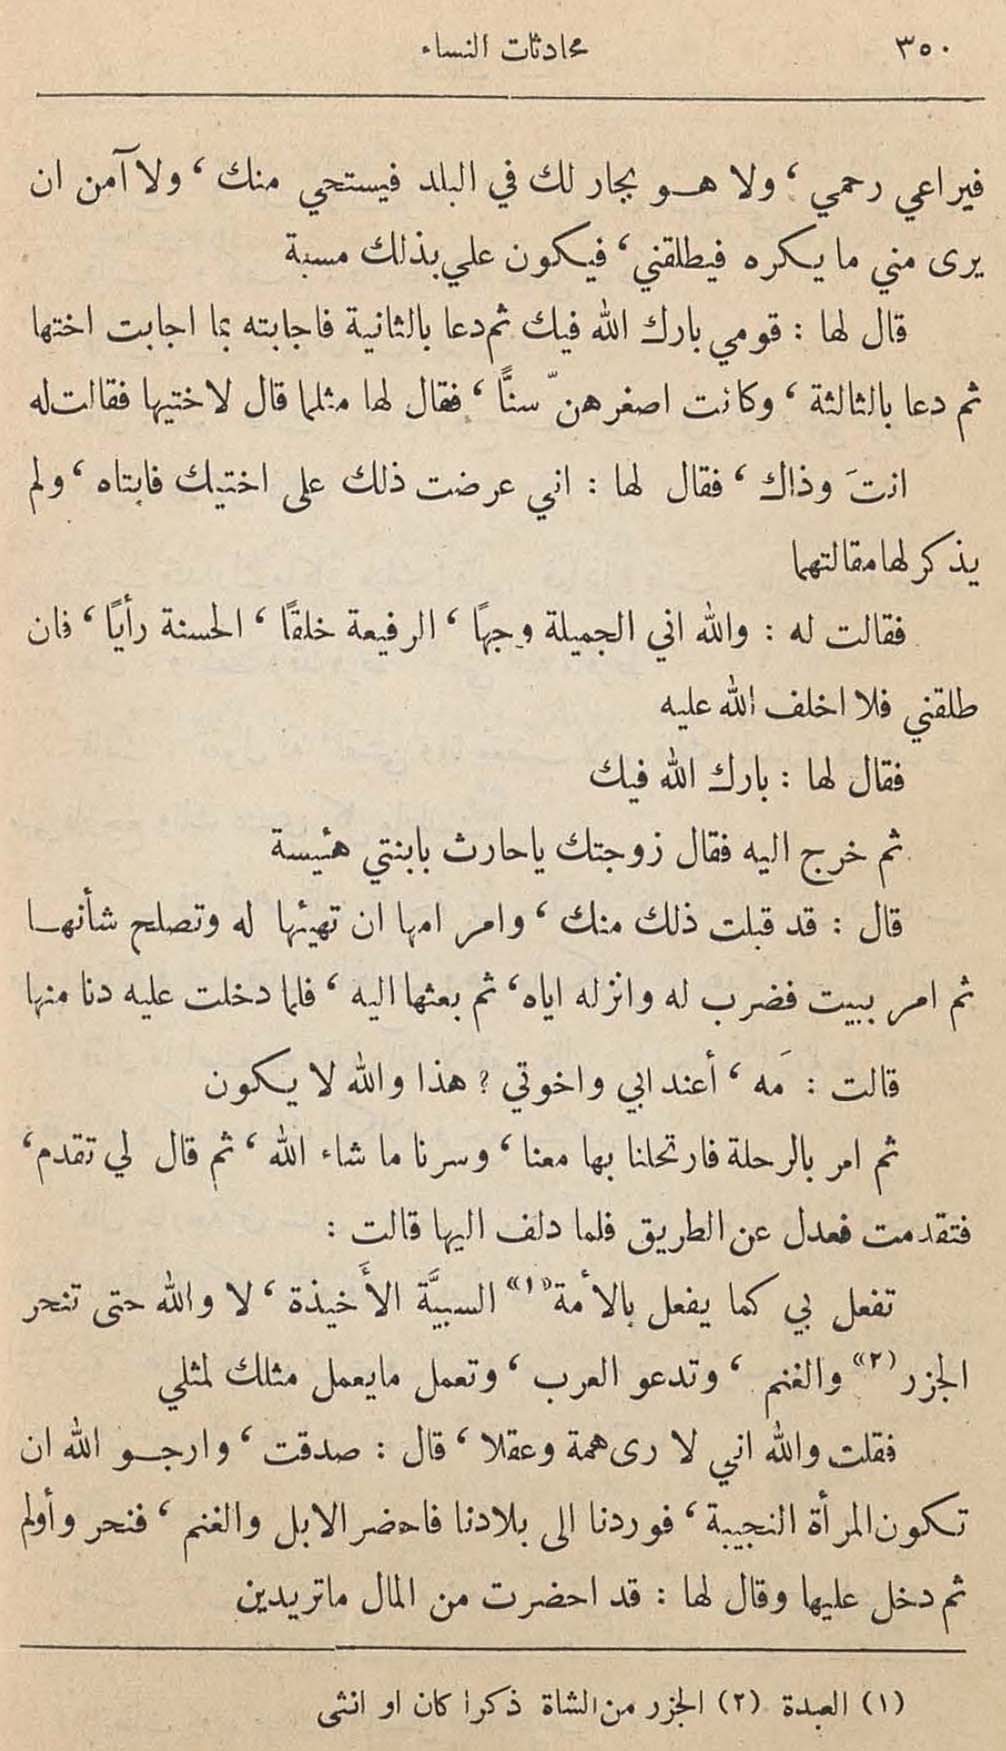 ٣٥٠ محادثات النساء
فيراعي رحمي ، ولا هو بجار لك في البلد فيستحي منك ، ولا آمن ان
يرى مني ما يكره فيطلقني ، فيكون علي بذلك مسبة
قال لها : قومي بارك الله فيك ثم دعا بالثانية فاجابته بما اجابت اختها
ثم دعا بالثالثة ، وكانت اصغرهنّ سنًّا ، فقال لها مثلما قال لاختيها فقالت له
انتَ وذاك ، فقال لها : اني عرضت ذلك على اختيك فابتاه ، ولم
يذكر لها مقالتهما
فقالت له : والله اني الجميلة وجهًا ، الرفيعة خلقًا ، الحسنة رأيًا ، فان
طلقني فلا اخلف الله عليه
فقال لها : بارك الله فيك
ثم خرج اليه فقال زوجتك ياحارث بابنتي هئيسة
قال : قد قبلت ذلك منك ، وامر امها ان تهيئها له وتصلح شأنها
ثم امر ببيت فضرب له وانزله اياه ، ثم بعثها اليه ، فلما دخلت عليه دنا منها
قالت : مَه ، أعند ابي واخوتي ? هذا والله لا يكون
ثم امر بالرحلة فارتحلنا بها معنا ، وسرنا ما شاء الله ، ثم قال لي تقدم ،
فتقدمت فعدل عن الطريق فلما دلف اليها قالت :
تفعل بي كما يفعل بالأمة «١» السبيَّة الأَخيذة ، لا والله حتى تنحر
الجزر (٢» والغنم ، وتدعو العرب ، وتعمل مايعمل مثلك لمثلي
فقلت والله اني لا رى همة وعقلا ، قال : صدقت ، وارجو الله ان
تكون المرأة النجيبة ، فوردنا الى بلادنا فاحضر الابل والغنم ، فنحر وأولم
ثم دخل عليها وقال لها : قد احضرت من المال ماتريدين
(١) العبدة (٢) الجزر من الشاة ذكرا كان او انثى